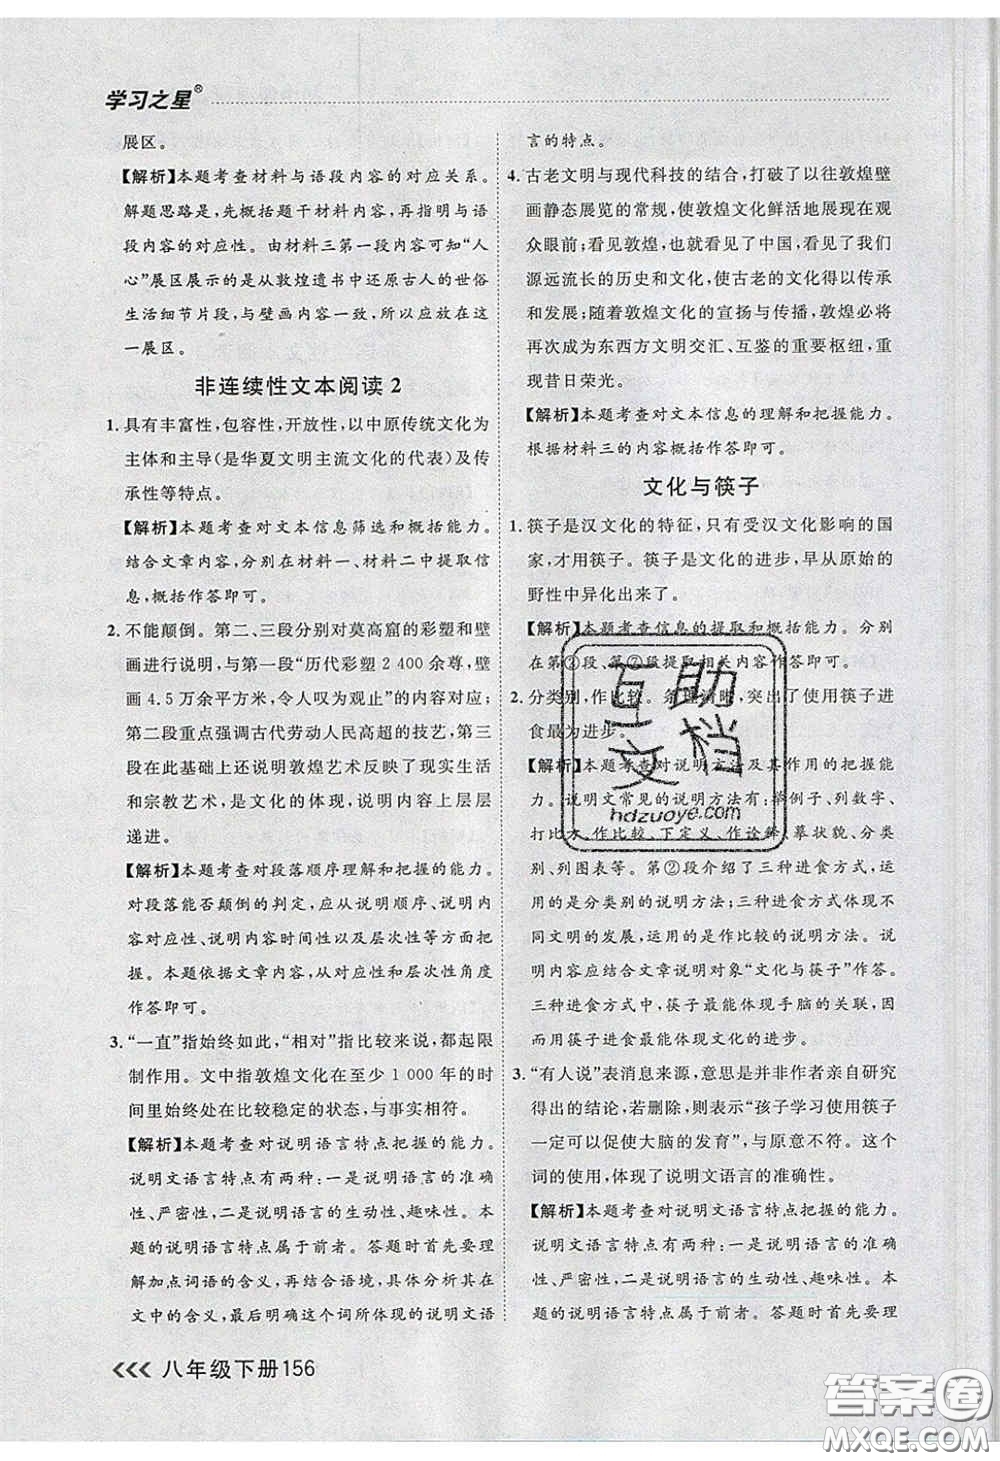 学习之星®
展区。
【解析】本题考查材料与语段内容的对应关系。
解题思路是，先概括题干材料内容，再指明与语
段内容的对应性。由材料三第一段内容可知“人
心”展区展示的是从敦煌遗书中还原古人的世俗
生活细节片段，与壁画内容一致，所以应放在这
一展区。
非连续性文本阅读 2
1. 具有丰富性，包容性，开放性，以中原传统文化为
主体和主导(是华夏文明主流文化的代表)及传
承性等特点。
【解析】本题考查对文本信息筛选和概括能力。
结合文章内容，分别在材料一、材料二中提取信
息，概括作答即可。
2. 不能颠倒。第二、三段分别对莫高窟的彩塑和壁
画进行说明，与第一段“历代彩塑 2 400 余尊，壁
画 4.5 万余平方米，令人叹为观止”的内容对应；
第二段重点强调古代劳动人民高超的技艺，第三
段在此基础上还说明敦煌艺术反映了现实生活
和宗教艺术，是文化的体现，说明内容上层层
递进。
【解析】本题考查对段落顺序理解和把握的能力。
对段落能否颠倒的判定，应从说明顺序、说明内
容对应性、说明内容时间性以及层次性等方面把
握。本题依据文章内容，从对应性和层次性角度
作答即可。
3. “一直”指始终如此，“相对”指比较来说，都起限
制作用。文中指敦煌文化在至少 1 000 年的时
间里始终处在比较稳定的状态，与事实相符。
【解析】本题考查对说明语言特点把握的能力。
说明文语言特点有两种：一是说明语言的准确
性、严密性，二是说明语言的生动性、趣味性。本
题的说明语言特点属于前者。答题时首先要理
解加点词语的含义，再结合语境，具体分析其在
文中的含义，最后明确这个词所体现的说明文语
言的特点。
4. 古老文明与现代科技的结合，打破了以往敦煌壁
画静态展览的常规，使敦煌文化鲜活地展现在观
众眼前；看见敦煌，也就看见了中国，看见了我们
源远流长的历史和文化，使古老的文化得以传承
和发展；随着敦煌文化的宣扬与传播，敦煌必将
再次成为东西方文明交汇、互鉴的重要枢纽，重
现昔日荣光。
【解析】本题考查对文本信息的理解和把握能力。
根据材料三的内容概括作答即可。
文化与筷子
1. 筷子是汉文化的特征，只有受汉文化影响的国
家，才用筷子。筷子是文化的进步，早从原始的
野性中异化出来了。
【解析】本题考查信息的提取和概括能力。分别
在第③段、第⑦段提取相关内容作答即可。
2. 分类别，作比较。条理清晰，突出了使用筷子进
食最为进步。
【解析】本题考查说明方法及其作用的把握能
力。说明文常见的说明方法有：举例子、列数字、
打比方、作比较、下定义、作诠释、摹状貌、分类
别、列图表等。第②段介绍了三种进食方式，运
用的是分类别的说明方法；三种进食方式体现不
同文明的发展，运用的是作比较的说明方法。说
明内容应结合文章说明对象“文化与筷子”作答。
三种进食方式中，筷子最能体现手脑的关联，因
而使用筷子进食最能体现文化的进步。
3. “有人说”表消息来源，意思是并非作者亲自研究
得出的结论，若删除，则表示“孩子学习使用筷子
一定可以促使大脑的发育”，与原意不符。这个
词的使用，体现了说明文语言的准确性。
【解析】本题考查对说明文语言特点把握的能力。
说明文语言特点有两种：一是说明语言的准确
性、严密性，二是说明语言的生动性、趣味性。本
题的说明语言特点属于前者。答题时首先要理
互助文档
hdzuoye.com
八年级下册156
答案圈
MXQE.COM